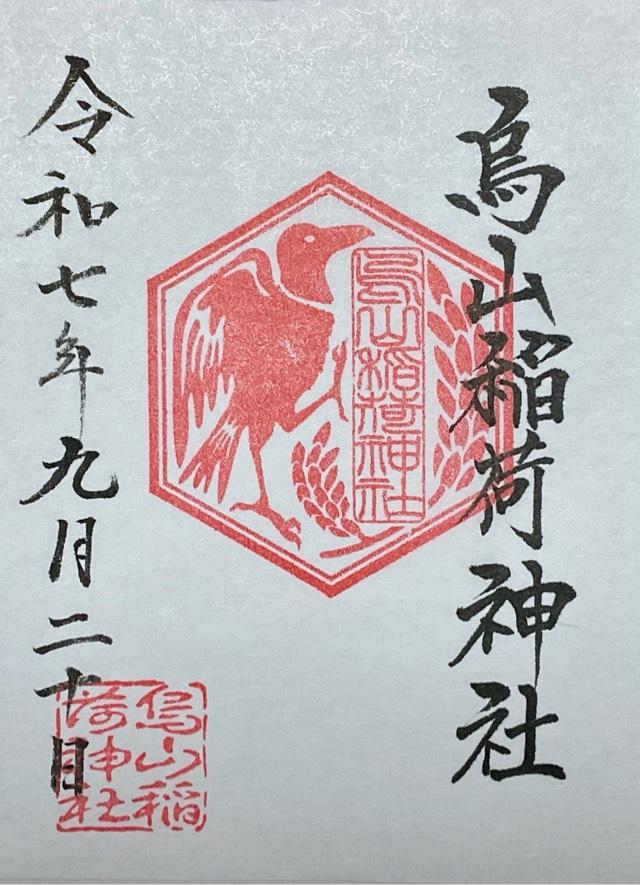 烏山稲荷神社
烏山稲荷神社
令和七年九月二十日
烏山稲
荷神社